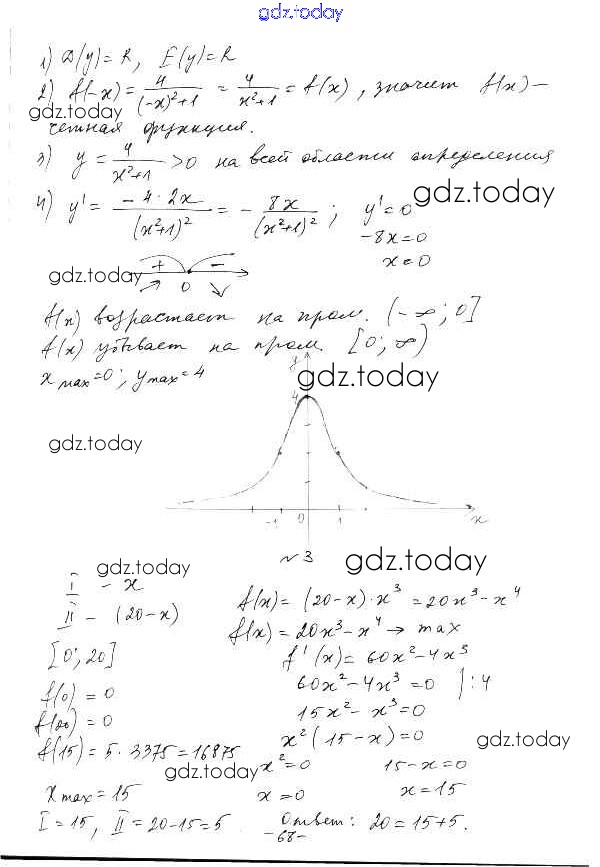 gdz.today
1) D(y)=R, E(y)=R
2) f(-x) = 4/((-x)²+1) = 4/(x²+1) = f(x), значит f(x) –
gdz.today
четная функция.
3) y = 4/(x²+1) >0 на всей области определения
gdz.today
4) y' = (-4·2x)/(x²+1)² = - 8x/(x²+1)²; y'=0
-8x=0
x=0
+ -
gdz.today
0
f(x) возрастает на пром. (-∞; 0]
f(x) убывает на пром. [0; ∞)
x max=0; y max=4
gdz.today
y
4
gdz.today
-1 0 1 x
№3
gdz.today
gdz.today
I - x
II - (20-x)
[0; 20]
f(0) = 0
f(20) = 0
f(15) = 5·3375=16875
x max = 15
I=15, II=20-15=5.
f(x)= (20-x)·x³ =20x³-x⁴
f(x)=20x³-x⁴ → max
f'(x)= 60x²-4x³
60x²-4x³=0 ] :4
15x²-x³=0
x²(15-x)=0
gdz.today
gdz.today
x²=0 15-x=0
x=0 x=15
Ответ: 20=15+5.
-68-